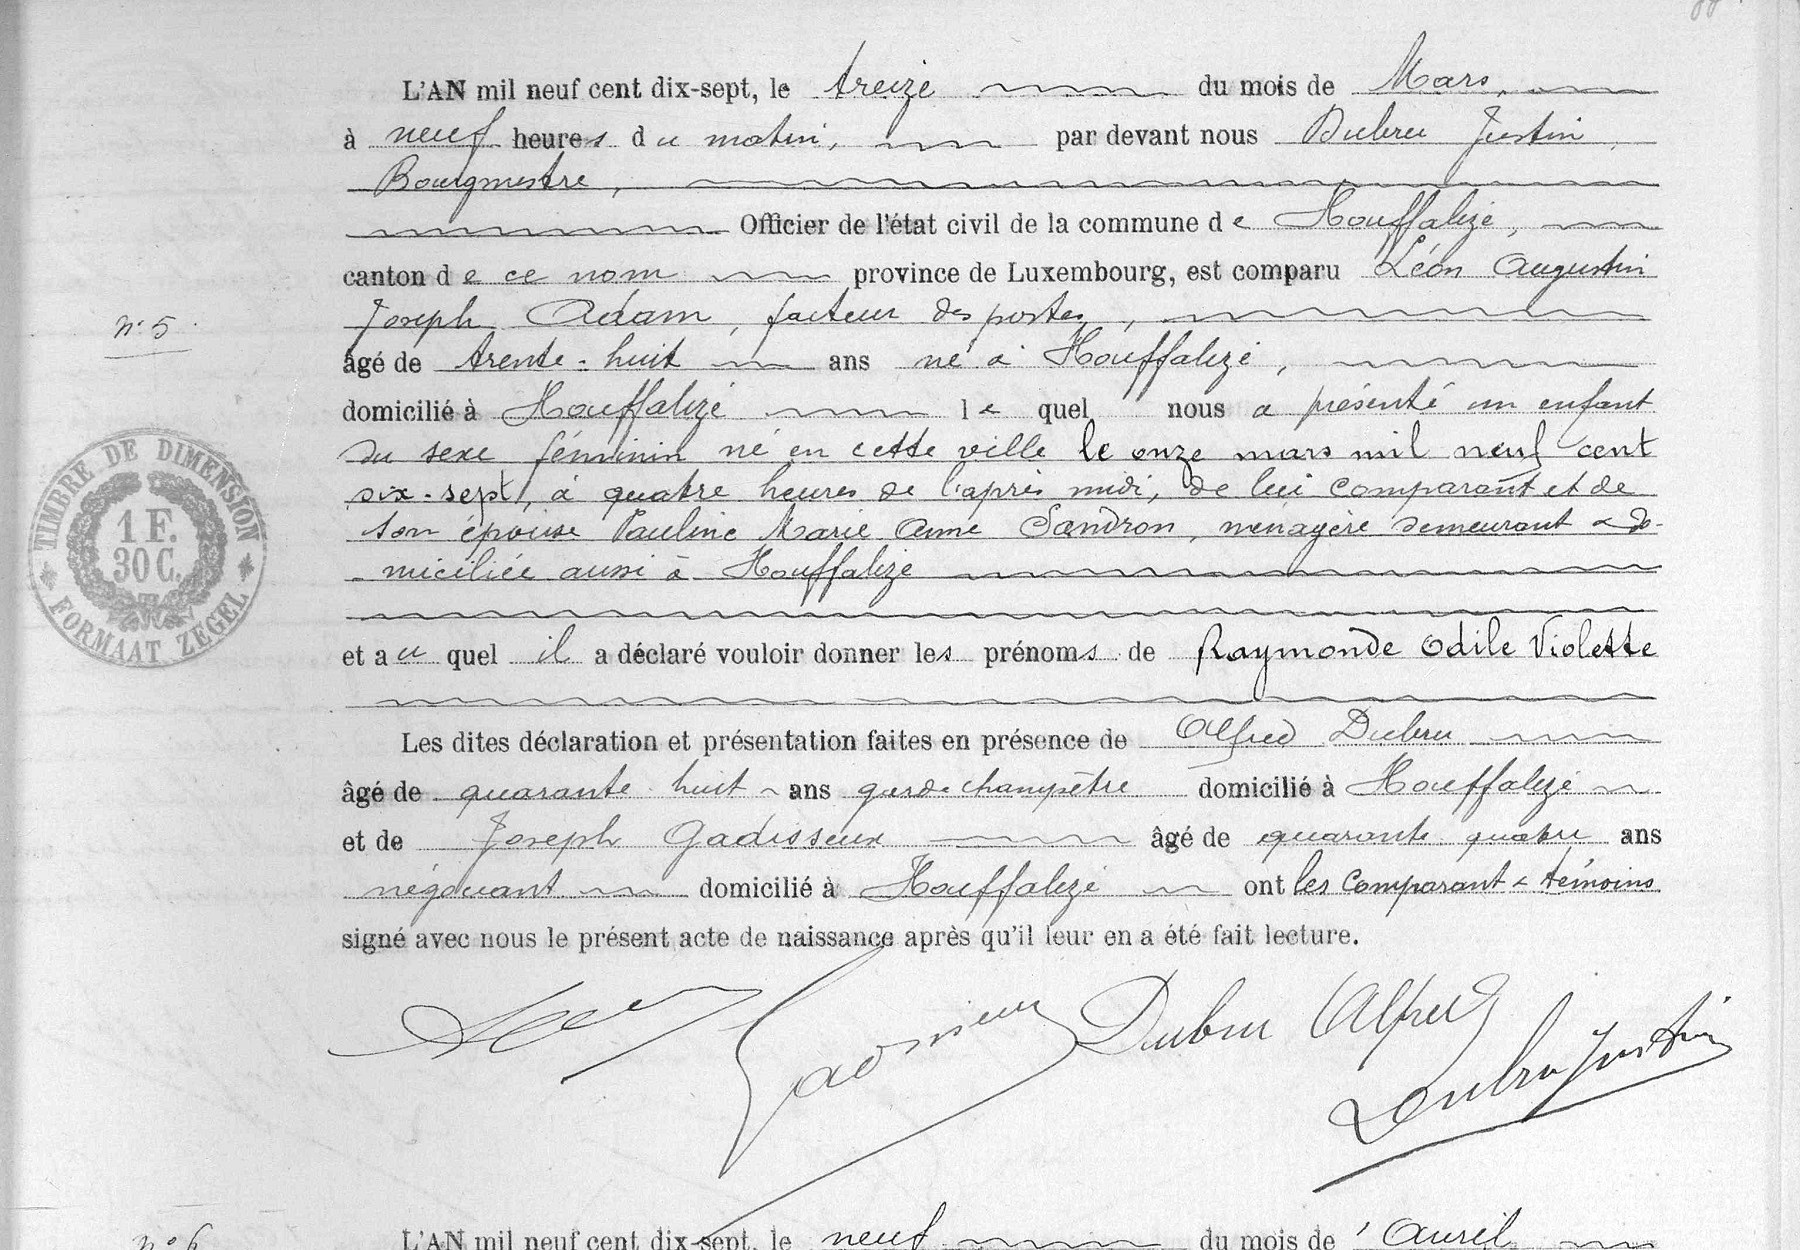 L'AN mil neuf cent dix-sept, le treize du mois de Mars,
à neuf heures du matin, par devant nous Dubru Justin,
Bourgmestre,
Officier de l'état civil de la commune de Houffalize,
canton de ce nom province de Luxembourg, est comparu Léon Augustin
Joseph Adam, facteur des postes,
N° 5
âgé de trente-huit ans né à Houffalize,
domicilié à Houffalize lequel nous a présenté un enfant
du sexe féminin né en cette ville le onze mars mil neuf cent
dix-sept, à quatre heures de l'après midi, de lui comparant et de
son épouse Pauline Marie Anne Sandron, ménagère demeurant & do-
miciliée aussi à Houffalize
TIMBRE DE DIMENSION
1 F.
30 C.
FORMAAT ZEGEL
et au quel il a déclaré vouloir donner les prénoms de Raymonde Odile Violette
Les dites déclaration et présentation faites en présence de Alfred Dubru
âgé de quarante huit ans garde champêtre domicilié à Houffalize
et de Joseph Gadisseux âgé de quarante quatre ans
négociant domicilié à Houffalize ont les comparant & témoins
signé avec nous le présent acte de naissance après qu'il leur en a été fait lecture.
Gadisseux Dubru Alfred
Dubru Justin
N° 6
L'AN mil neuf cent dix-sept, le neuf du mois de Avril,